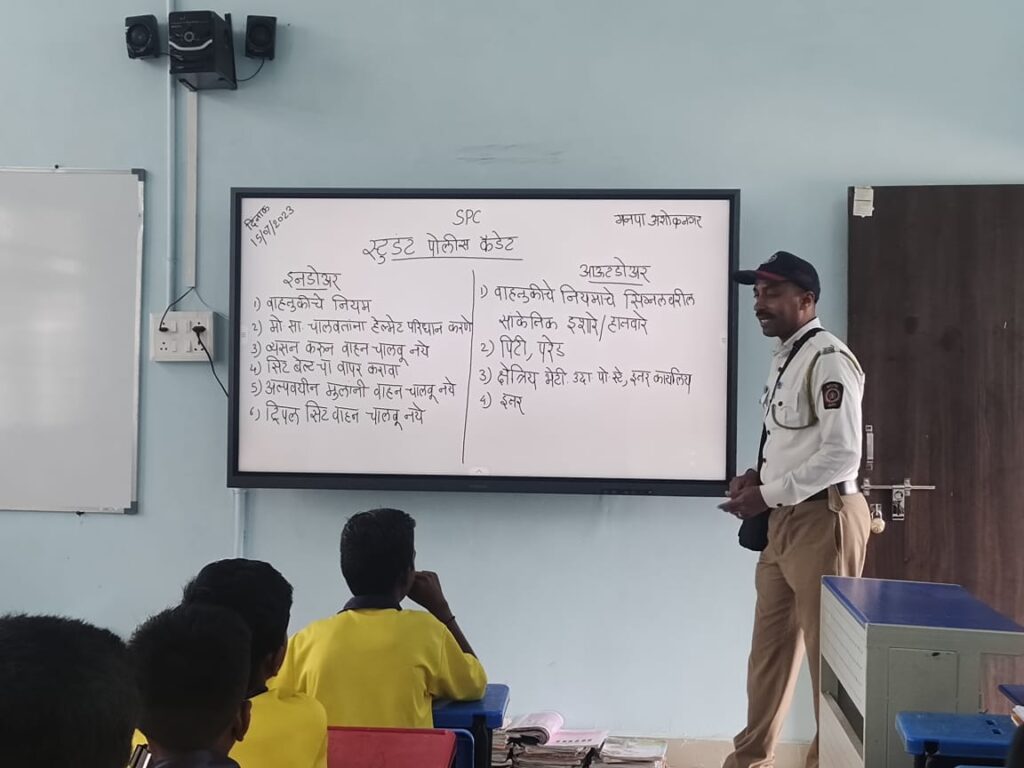 दिनांक
15/07/2023
SPC
मनपा अशोकनगर
स्टुडंट पोलीस कॅडेट
इनडोअर
1) वाहतुकीचे नियम
2) मो सा चालवताना हेल्मेट परिधान करणे
3) व्यसन करुन वाहन चालवू नये
4) सिट बेल्ट चा वापर करावा
5) अल्पवयीन मुलानी वाहन चालवू नये
6) ट्रिपल सिट वाहन चालवू नये
आऊटडोअर
1) वाहतुकीचे नियमाचे सिग्नलवरील
सांकेतिक इशारे/हातवारे
2) पिटी, परेड
3) क्षेत्रिय भेटी. उदा पो स्टे, इतर कार्यालय
4) इतर